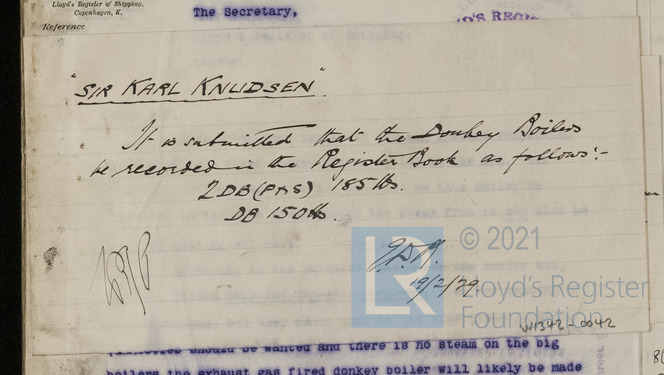 Lloyd's Register of Shipping,
Copenhagen, K.
The Secretary,
Reference
"SIR KARL KNUDSEN".
It is submitted that the Donkey Boilers
be recorded in the Register Book as follows:-
2DB (PAS) 185 lbs.
DB 150 lbs.
19/2/29
LR
© 2021
Lloyd's Register
Foundation
W1342-0042
should be wanted and there is no steam on the big
boilers the exhaust gas fired donkey boiler will likely be made